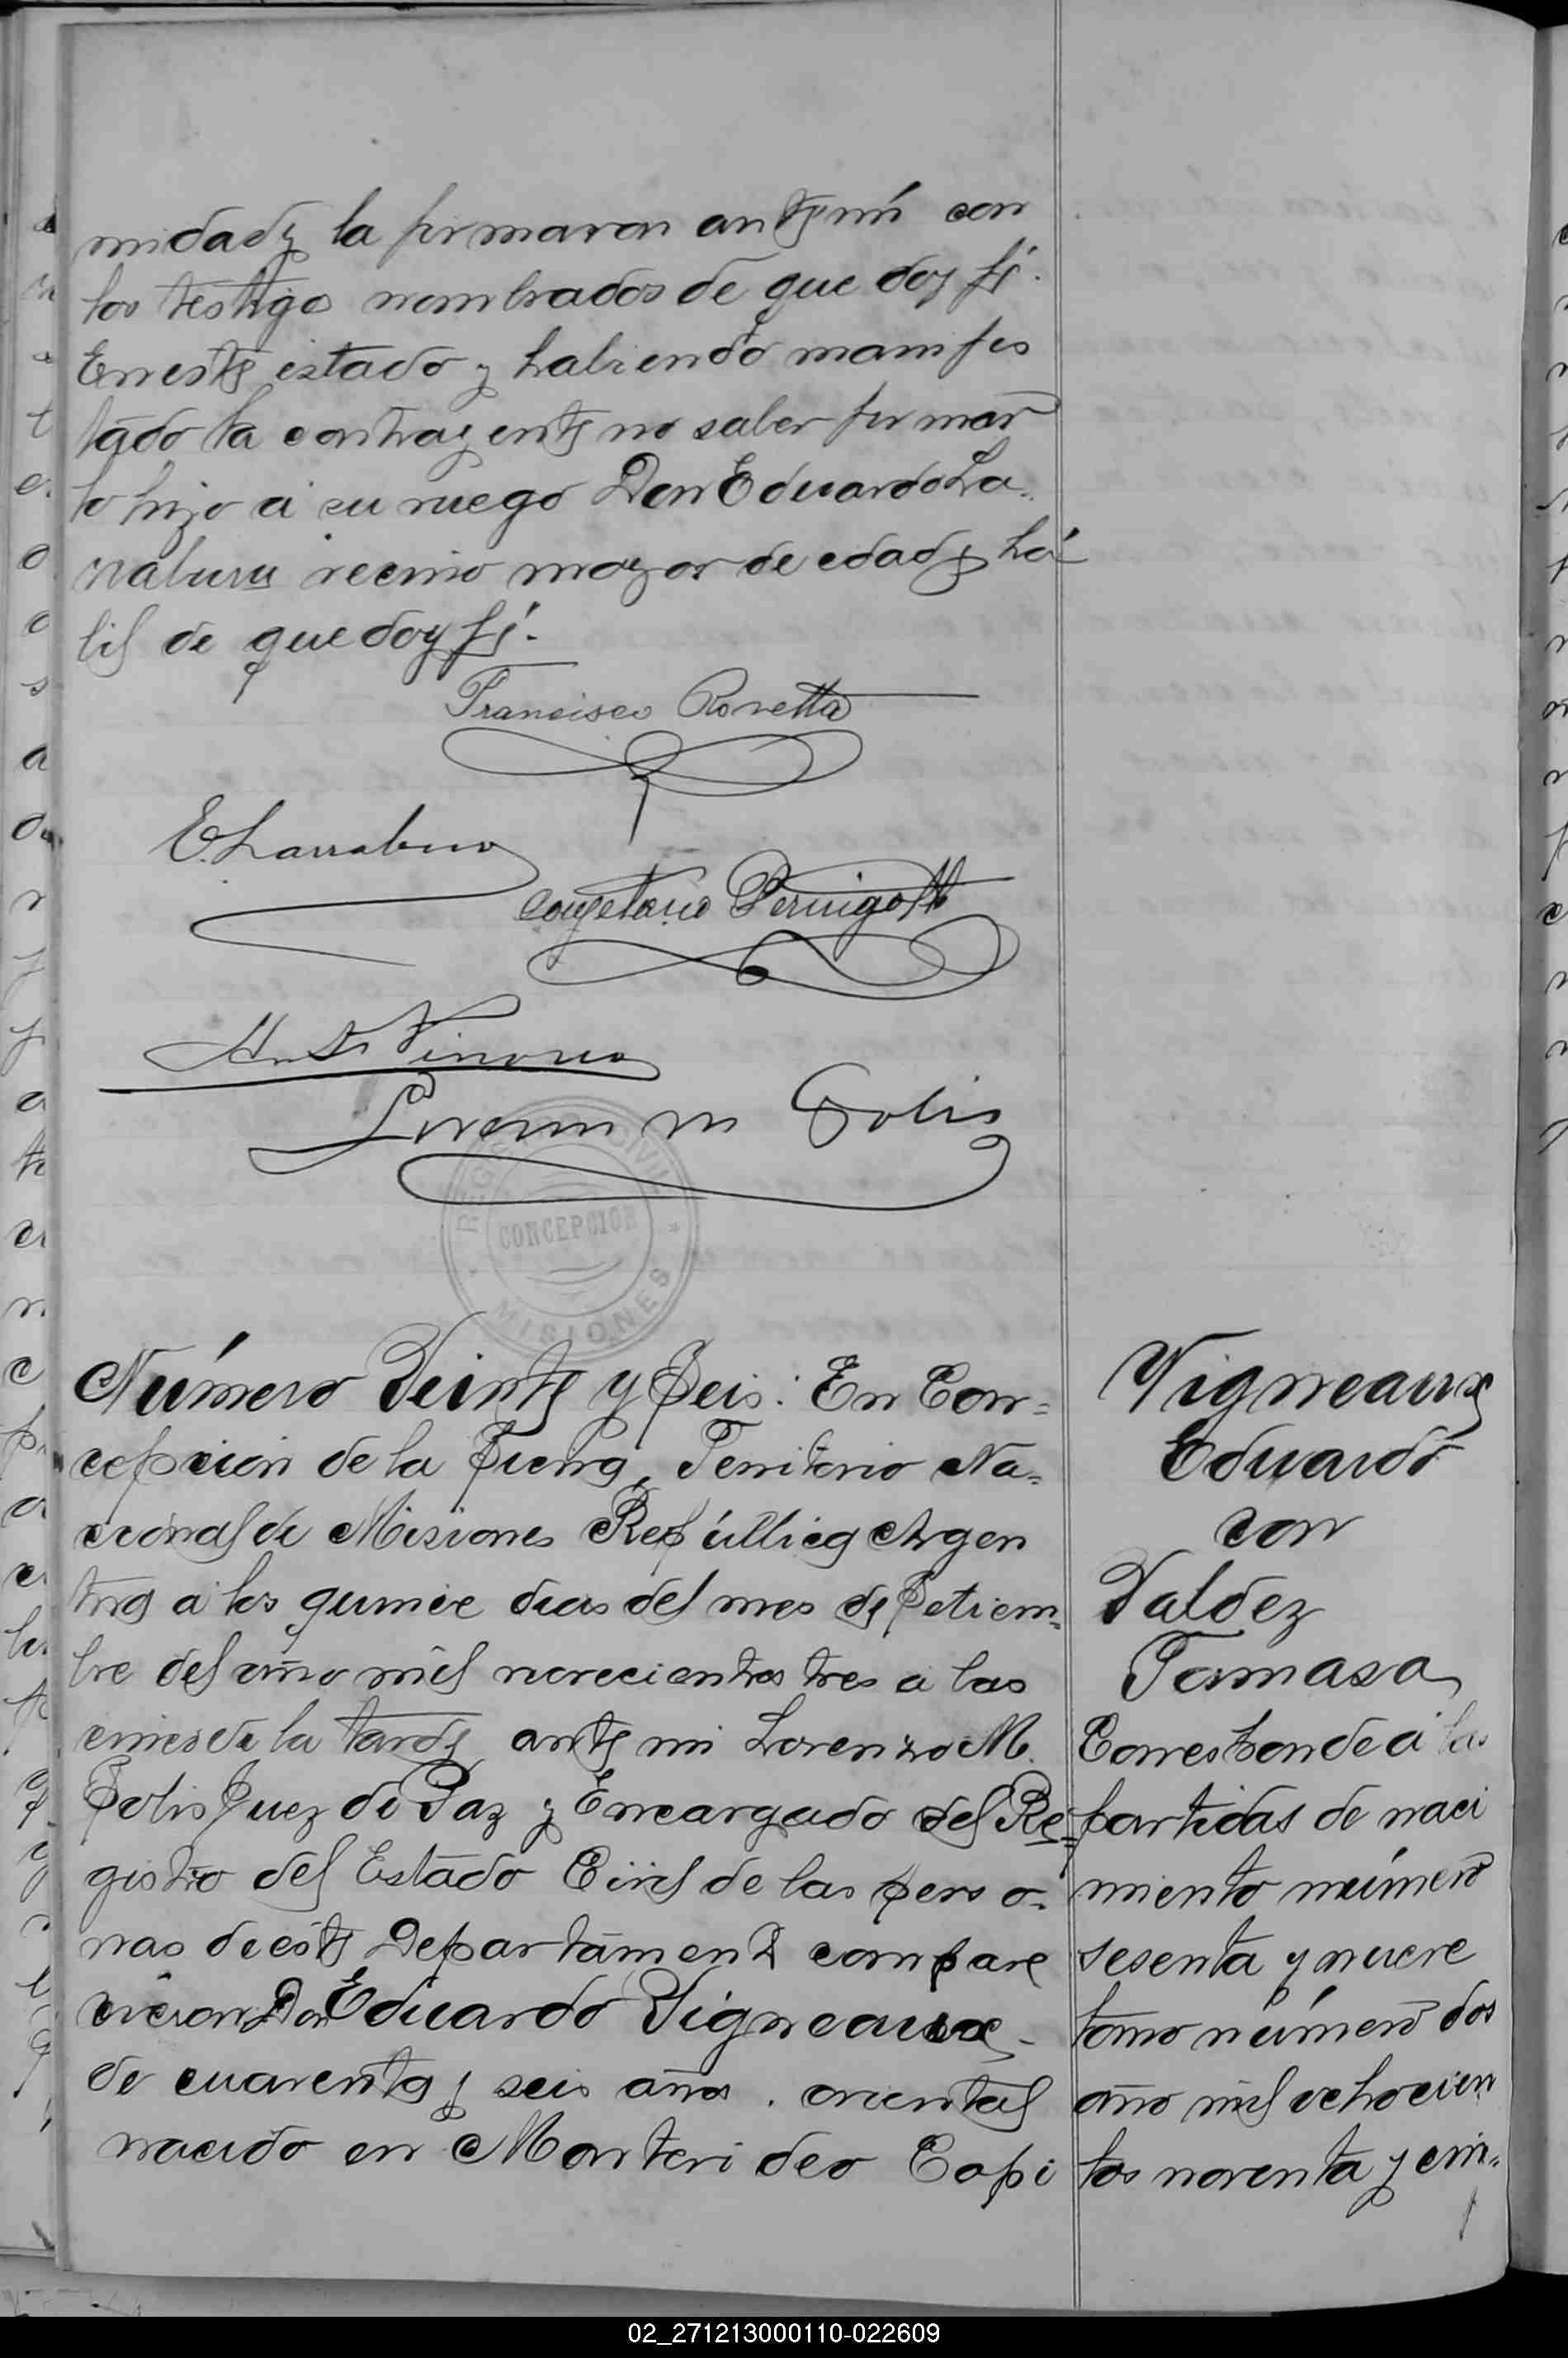 midad y la firmaron ante mí con
los testigo nombrados de que doy fé.
En este estado y habiendo manifes
tado la contrayente no saber firmar
lo hizo á su ruego Don Eduardo La-
rraburu vecino mayor de edad y há
bil de que doy fé.
Francisco Rovetta
E. Larraburu
Cayetano Pernigotti
Lorenzo M Solis
REGISTRO CIVIL
CONCEPCION
MISIONES
Número Veinte y Seis: En Con=
cepcion de la Sierra, Territorio Na=
cional de Misiones República Argen
tina á los quince dias del mes de Setiem=
bre del año mil novecientos tres á las
cinco de la tarde ante mi Lorenzo M.
Solis Juez de Paz y Encargado del Re=
gistro del Estado Civil de las perso=
nas de éste Departamento compare
cieron Don Eduardo Vigneaux
de cuarenta y seis años, oriental
nacido en Montevideo Capi
Vigneaux
Eduardo
con
Valdez
Tomasa
Corresponde á las
partidas de naci
miento número
sesenta y nueve
tomo número dos
año mil ochocien
tos noventa y cin=
02_271213000110-022609